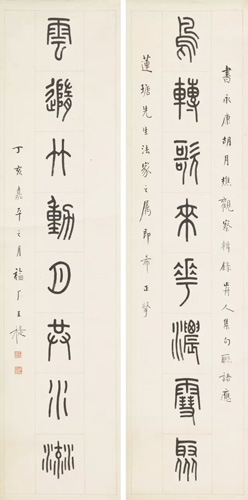 書永康胡月樵觀察輯錄人集句聯語應
鳥轉歌來花濃雪聚
蓮塘先生法家之屬即希正
雲隨竹動月共水流
丁亥嘉平之月福厂王禔